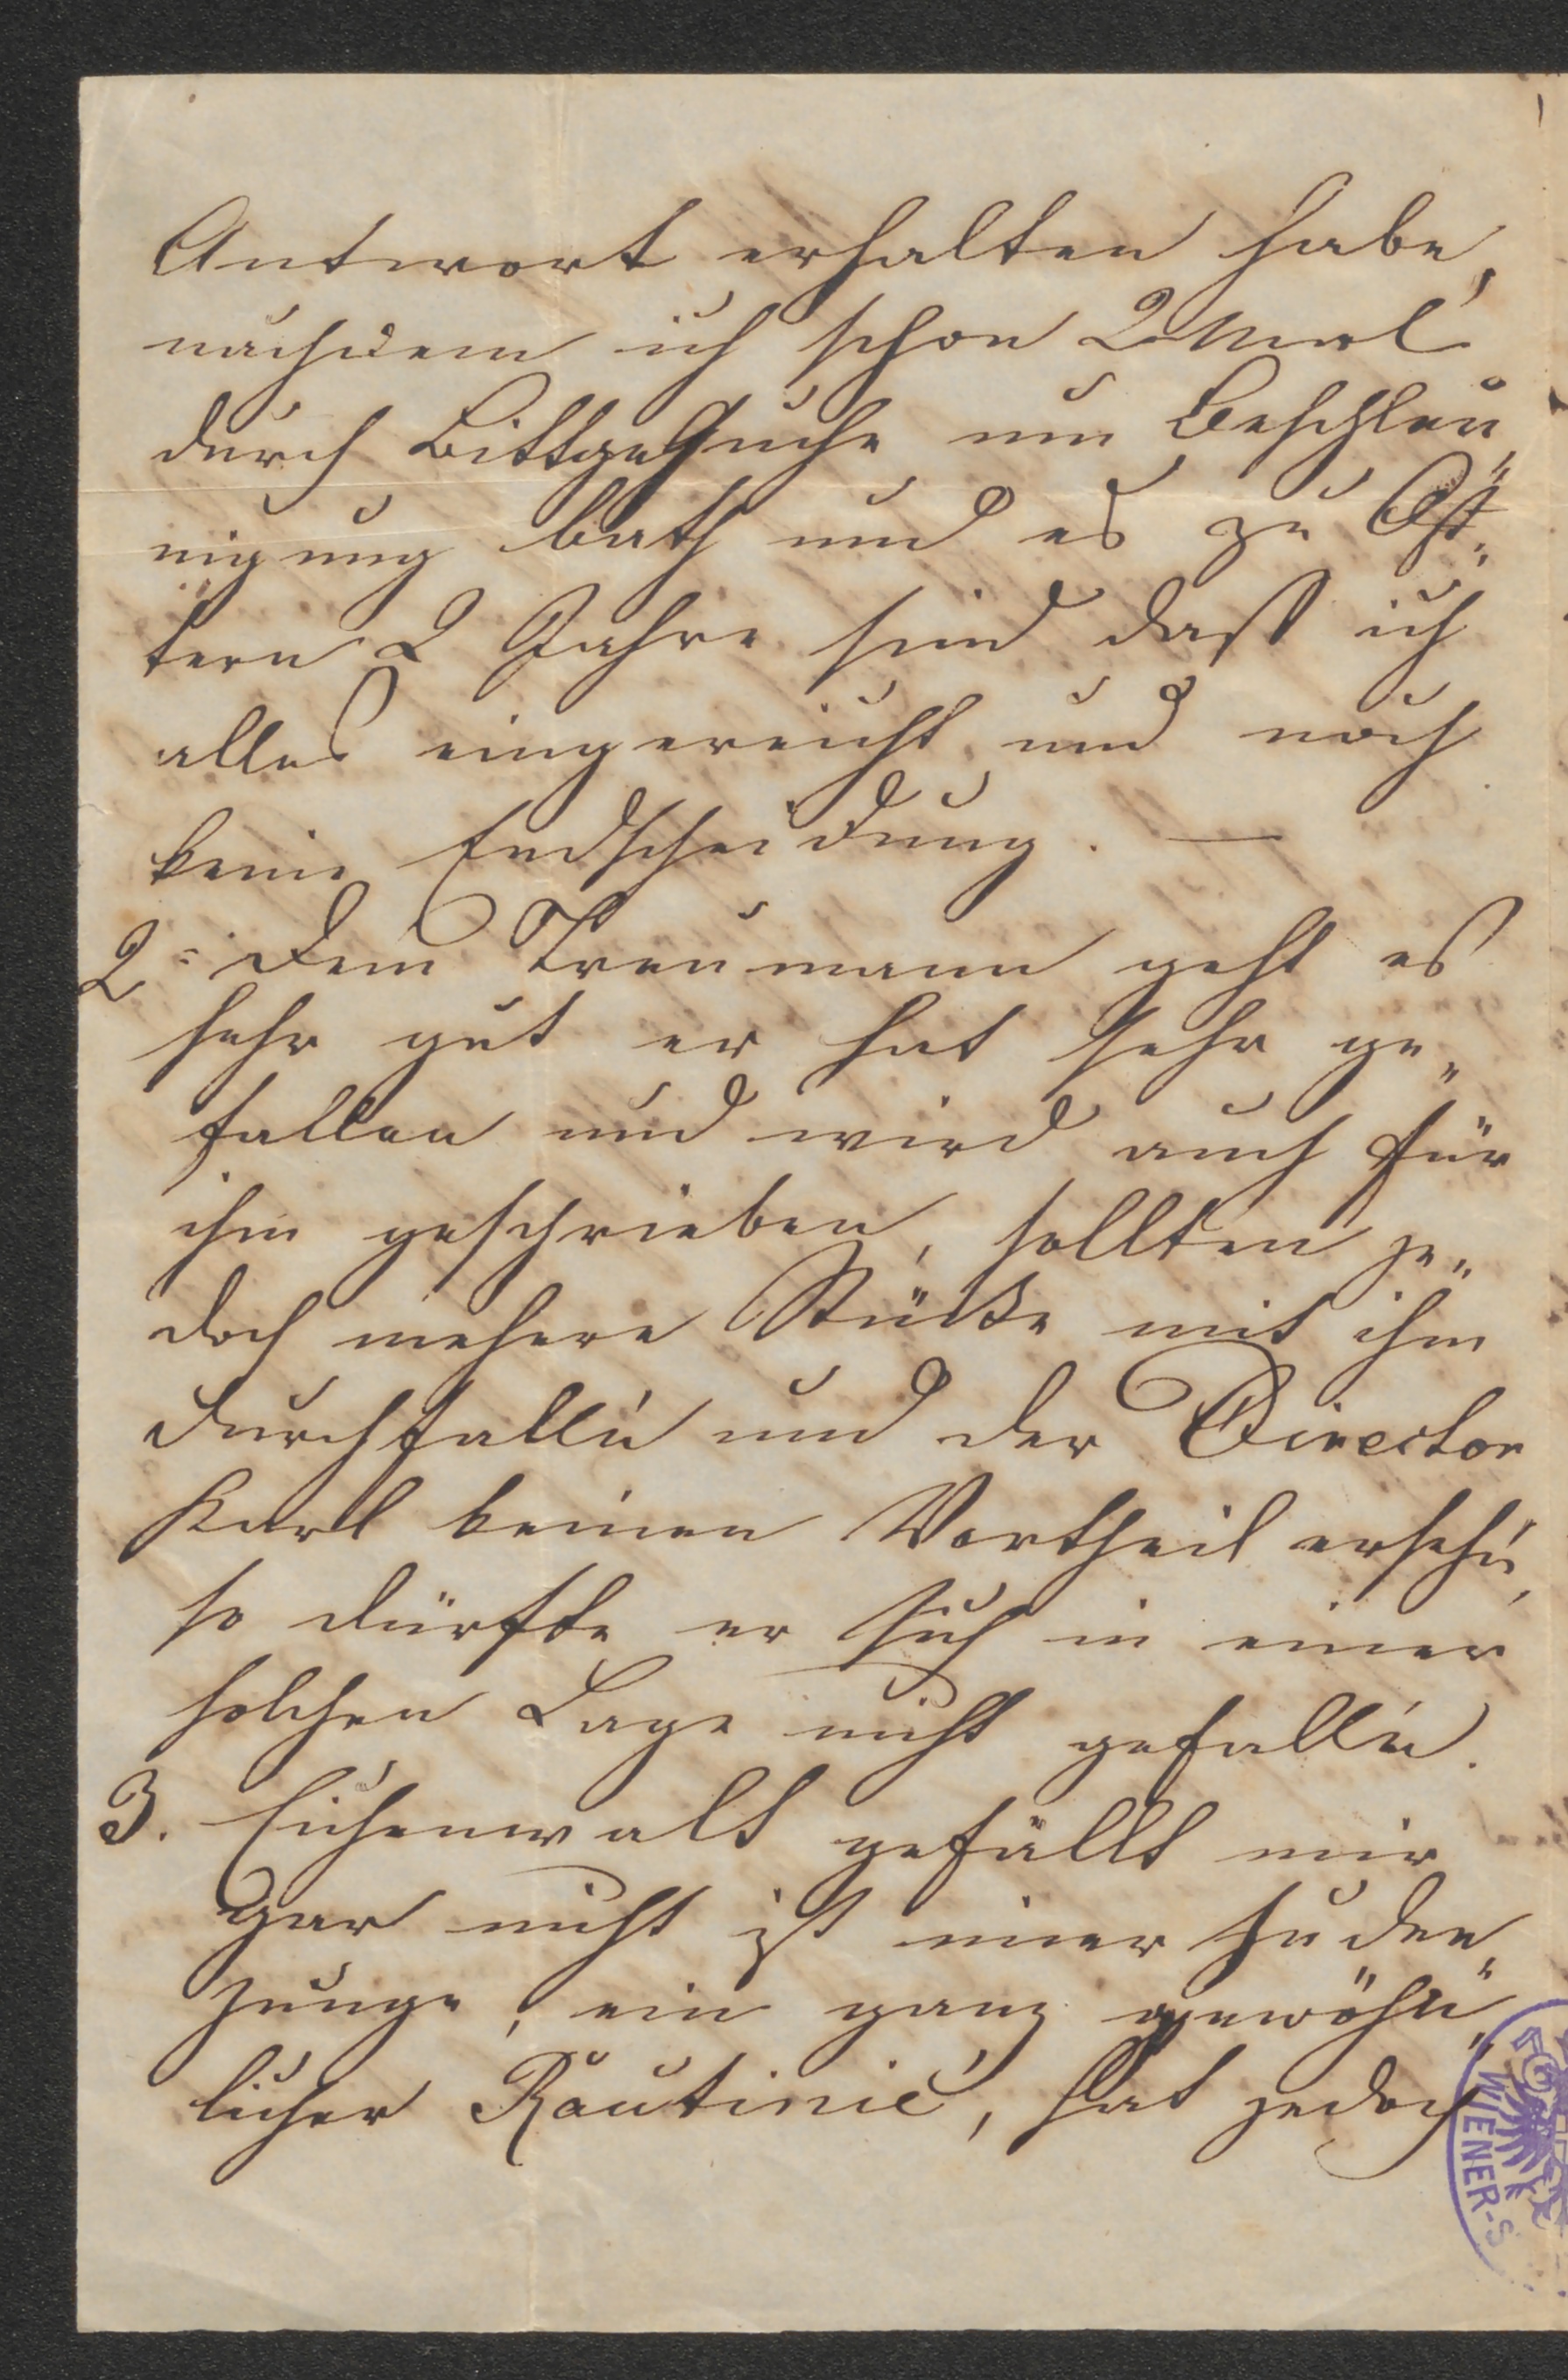 Antwort erhalten habe,
nachdem ich schon 2 Mal
durch Bittgesuche um Beschleu„
nigung bath und es zu Os„
tern 2 Jahre sind dass ich
alles eingereicht und noch
keine Endscheidung. —
2. Dem Treumann geht es
sehr gut er hat sehr ge„
fallen und wird auch für
ihm geschrieben, sollten je„
doch mehere Stücke mit ihm
durchfallen und der Director
Karl keinen Vortheil ersehn,
so dürfte er sich in einer
solchen Lage nicht gefallen.
3. Eichenwalt gefällt mir
gar nicht ist einer Juden„
junge, ein ganz gewöhn„
licher Rautinié, hat jedoch
WIENER-S